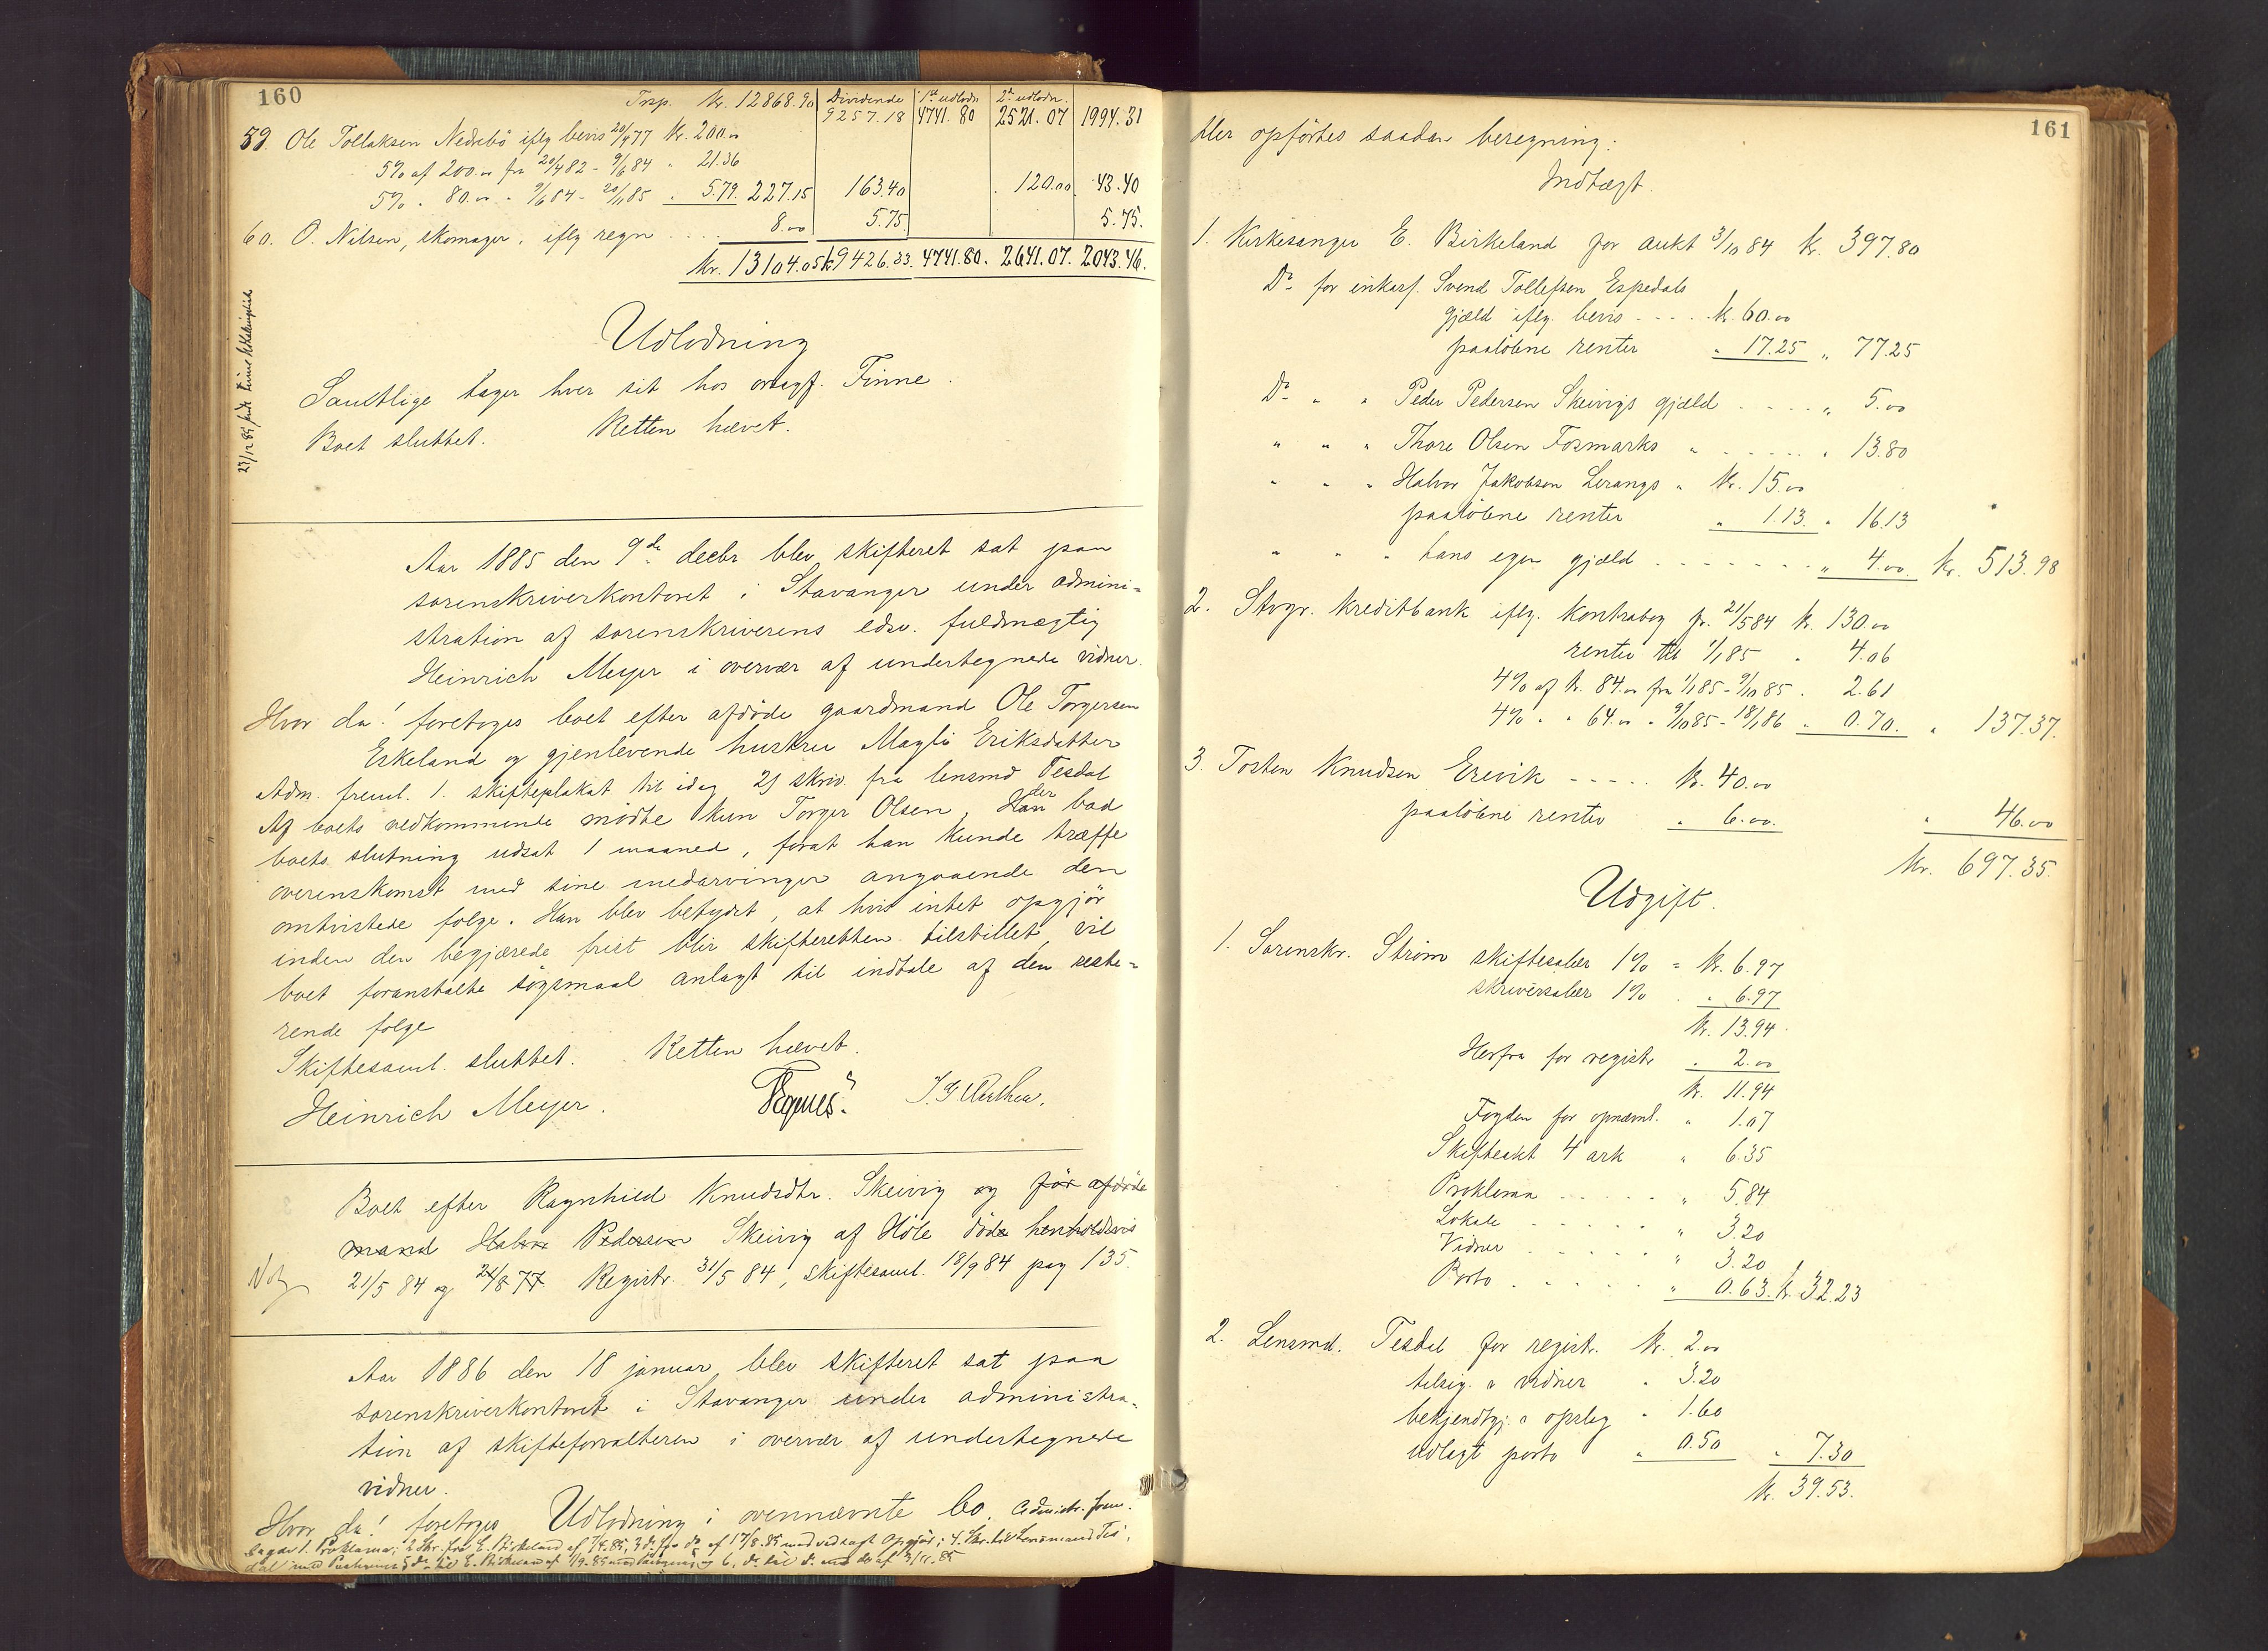 160
Trsp. Kr. 12868.90 Dividende 1ste udlodn. 2den udlodn.
9257.18 4741.80 2521.07 1994.31
59. Ole Tollaksen Nedrebö iflg bevis 20/4 77 Kr. 200.00
5% af 200.00 fra 20/4 82 - 9/6 84 " 21.36
5% " 80.00 " 9/6 84 - 20/11 85 " 5.79. 227.15 163.40 120.00 43.40
60. O. Nilsen, skomager, iflg regn .... 8.00 5.75 5.75.
Kr. 13104.05 k 9426.33. 4741.80. 2641.07. 2043.46.
Udlodning
Samtlige tager hver sit hos ovsagf. Finne.
Boet sluttet. Retten hævet.
Aar 1885 den 9de decbr blev skifteret sat paa
sorenskriverkontoret i Stavanger under admini-
stration af sorenskriverens edsv. fuldmægtig
Heinrich Meyer i overvær af undertegnede vidner.
Hvor da! foretoges boet efter afdöde gaardmand Ole Torgersen
Eskeland og gjenlevende hustru Magli Eriksdatter
Adm. freml. 1. skifteplakat til idag 2) skriv. fra lensmd Tesdal
Af boets vedkommende mødte kun Torger Olsen, der bad
boets slutning udsat 1 maaned, forat han kunde træffe
overenskomst med sine medarvinger angaaende den
omtvistede folge. Han blev betydet, at hvis intet opgjör
inden den begjærede frist blir skifteretten tilstillet, vil
boet foranstalte sögsmaal anlagt til indtale af den reste-
rende folge
Skiftesaml. sluttet. Retten hævet.
Heinrich Meyer.
Boet efter Ragnhild Knudsdtr. Skeivig og før afdöde
mand Halvor Pedersen Skeivig af Höle döde henholdsvis
21/5 84 og 24/8 77 Registr. 31/5 84, skiftesaml. 18/9 84 pag 135.
Aar 1886 den 18 januar blev skifteret sat paa
sorenskriverkontoret i Stavanger under administra-
tion af skifteforvalteren i overvær af undertegnede
vidner.
Hvor da! foretoges Udlodning i ovennævnte bo. Administr. frem-
lagde 1. Proklama; 2 Skr. fra E. Birkeland af 7/4.85; 3 do fra do af 17/8.85 med vedlagt Opgjör; 4. Skr. til Lensmand Tes-
161
Her opførtes saadan beregning:
Indtægt.
1. Kirkesanger E. Birkeland for aukt 3/10 84 Kr. 397.80
Do for inkass. Svend Tollefsen Espedals
gjæld iflg. bevis .... Kr. 60.00
paaløbne renter " 17.25 " 77.25
Do " " Peder Pedersen Skeivigs gjæld .... " 5.00
" " " Thore Olsen Fosmarks " ..... " 13.80
" " " Halvor Jakobsen Lerangs " Kr. 15.00
paaløbne renter " 1.13. " 16.13
" " " hans egen gjæld ....... " 4.00. Kr. 513.98
2. Stvgr. Kreditbank iflg. kontrabog pr. 21/5 84 Kr. 130.00
renter til 1/1 85 " 4.06
4% af Kr. 84.00 fra 1/1 85 - 9/10 85 " 2.61
4% " " 64.00 " 9/10 85 - 18/1 86 " 0.70. " 137.37.
3. Tosten Knudsen Erevik ..... Kr. 40.00
paaløbne renter " 6.00. " 46.00
Kr. 697.35.
Udgift.
1. Sorenskr. Strøm skiftesalær 1% = Kr. 6.97
skriversalær 1% " 6.97
Kr. 13.94.
Herfra for registr " 2.00
Kr. 11.94
Fogden for opnævnl. " 1.07
Skifteakt 4 ark " 6.35
Proklama ..... " 5.84
Lokale ..... " 3.20
Vidner ..... " 3.20
Porto ..... " 0.63. Kr. 32.23
2. Lensmd. Tesdal for registr. Kr. 2.00
tilsig. a vidner " 3.20
bekjendtgj. a opslag " 1.60
udlagt porto " 0.50 " 7.30
Kr. 39.53.